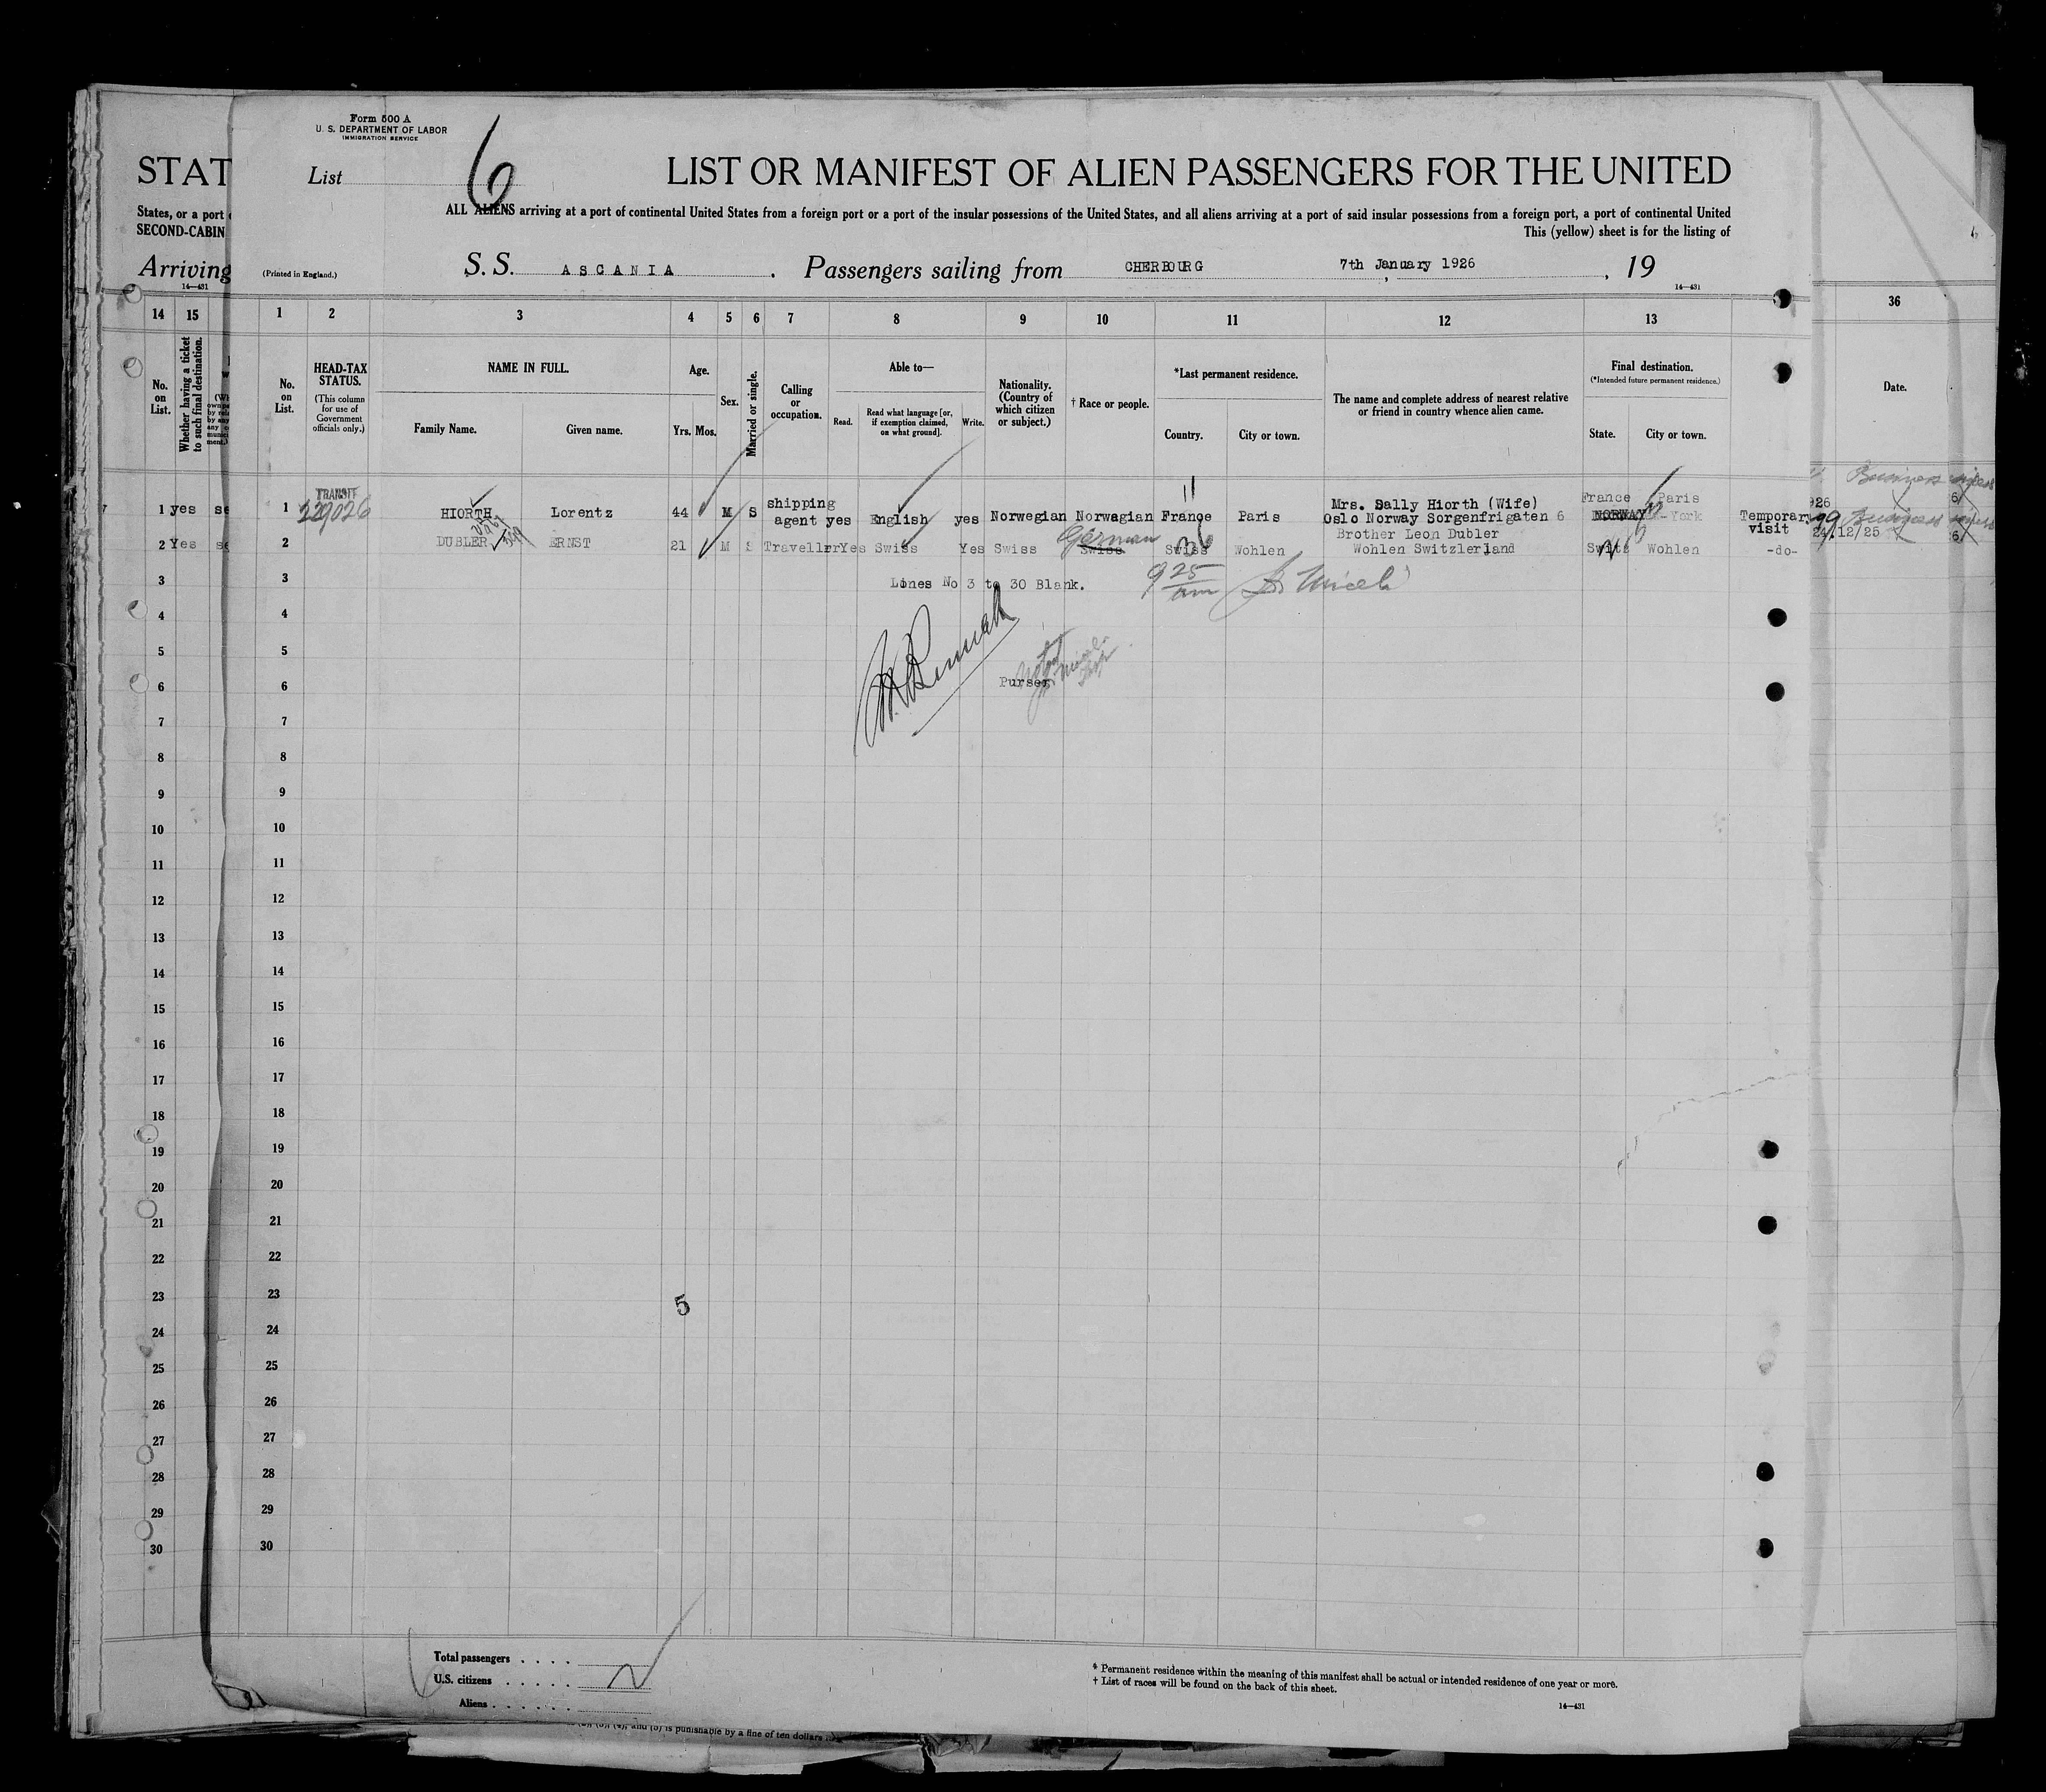 Form 500 A
U. S. DEPARTMENT OF LABOR
IMMIGRATION SERVICE
List 6
LIST OR MANIFEST OF ALIEN PASSENGERS FOR THE UNITED
ALL ALIENS arriving at a port of continental United States from a foreign port or a port of the insular possessions of the United States, and all aliens arriving at a port of said insular possessions from a foreign port, a port of continental United
This (yellow) sheet is for the listing of
(Printed in England.)
S. S. ASCANIA . Passengers sailing from CHERBOURG , 7th January 1926 , 19
14—431
STAT
States, or a port
SECOND-CABIN
Arriving
14—431
14 15
1 2 3 4 5 6 7 8 9 10 11 12 13
36
No. on List.
Whether having a ticket to such final destination.
No. on List.
HEAD-TAX STATUS.
(This column for use of Government officials only.)
NAME IN FULL.
Family Name. Given name.
Age.
Yrs. Mos.
Sex.
Married or single.
Calling or occupation.
Able to—
Read. Read what language [or, if exemption claimed, on what ground]. Write.
Nationality. (Country of which citizen or subject.)
† Race or people.
*Last permanent residence.
Country. City or town.
The name and complete address of nearest relative or friend in country whence alien came.
Final destination.
(*Intended future permanent residence.)
State. City or town.
Date.
1 yes se
TRANSIT
1 HIORTH Lorentz 44 M S shipping agent yes English yes Norwegian Norwegian France Paris Mrs. Sally Hiorth (Wife) France Paris
Oslo Norway Sorgenfrigaten 6 NORWAY -York Temporar visit
11
2 Yes se
2 DUBLER ERNST 21 M S Traveller Yes Swiss Yes Swiss Swiss German Swiss Wohlen Brother Leon Dubler
Wohlen Switzlerland Switz Wohlen -do-
36
Business
926
99 Business
24/12/25
3 3 Lines No 3 to 30 Blank. 9 25 am
4 4
5 5
6 6 Purser
7 7
8 8
9 9
10 10
11 11
12 12
13 13
14 14
15 15
16 16
17 17
18 18
19 19
20 20
21 21
22 22
23 23
5
24 24
25 25
26 26
27 27
28 28
29 29
30 30
Total passengers . . . .
U.S. citizens . . . . . .
Aliens . . . . . . .
* Permanent residence within the meaning of this manifest shall be actual or intended residence of one year or more.
† List of races will be found on the back of this sheet.
14—431
and (5) is punishable by a fine of ten dollars